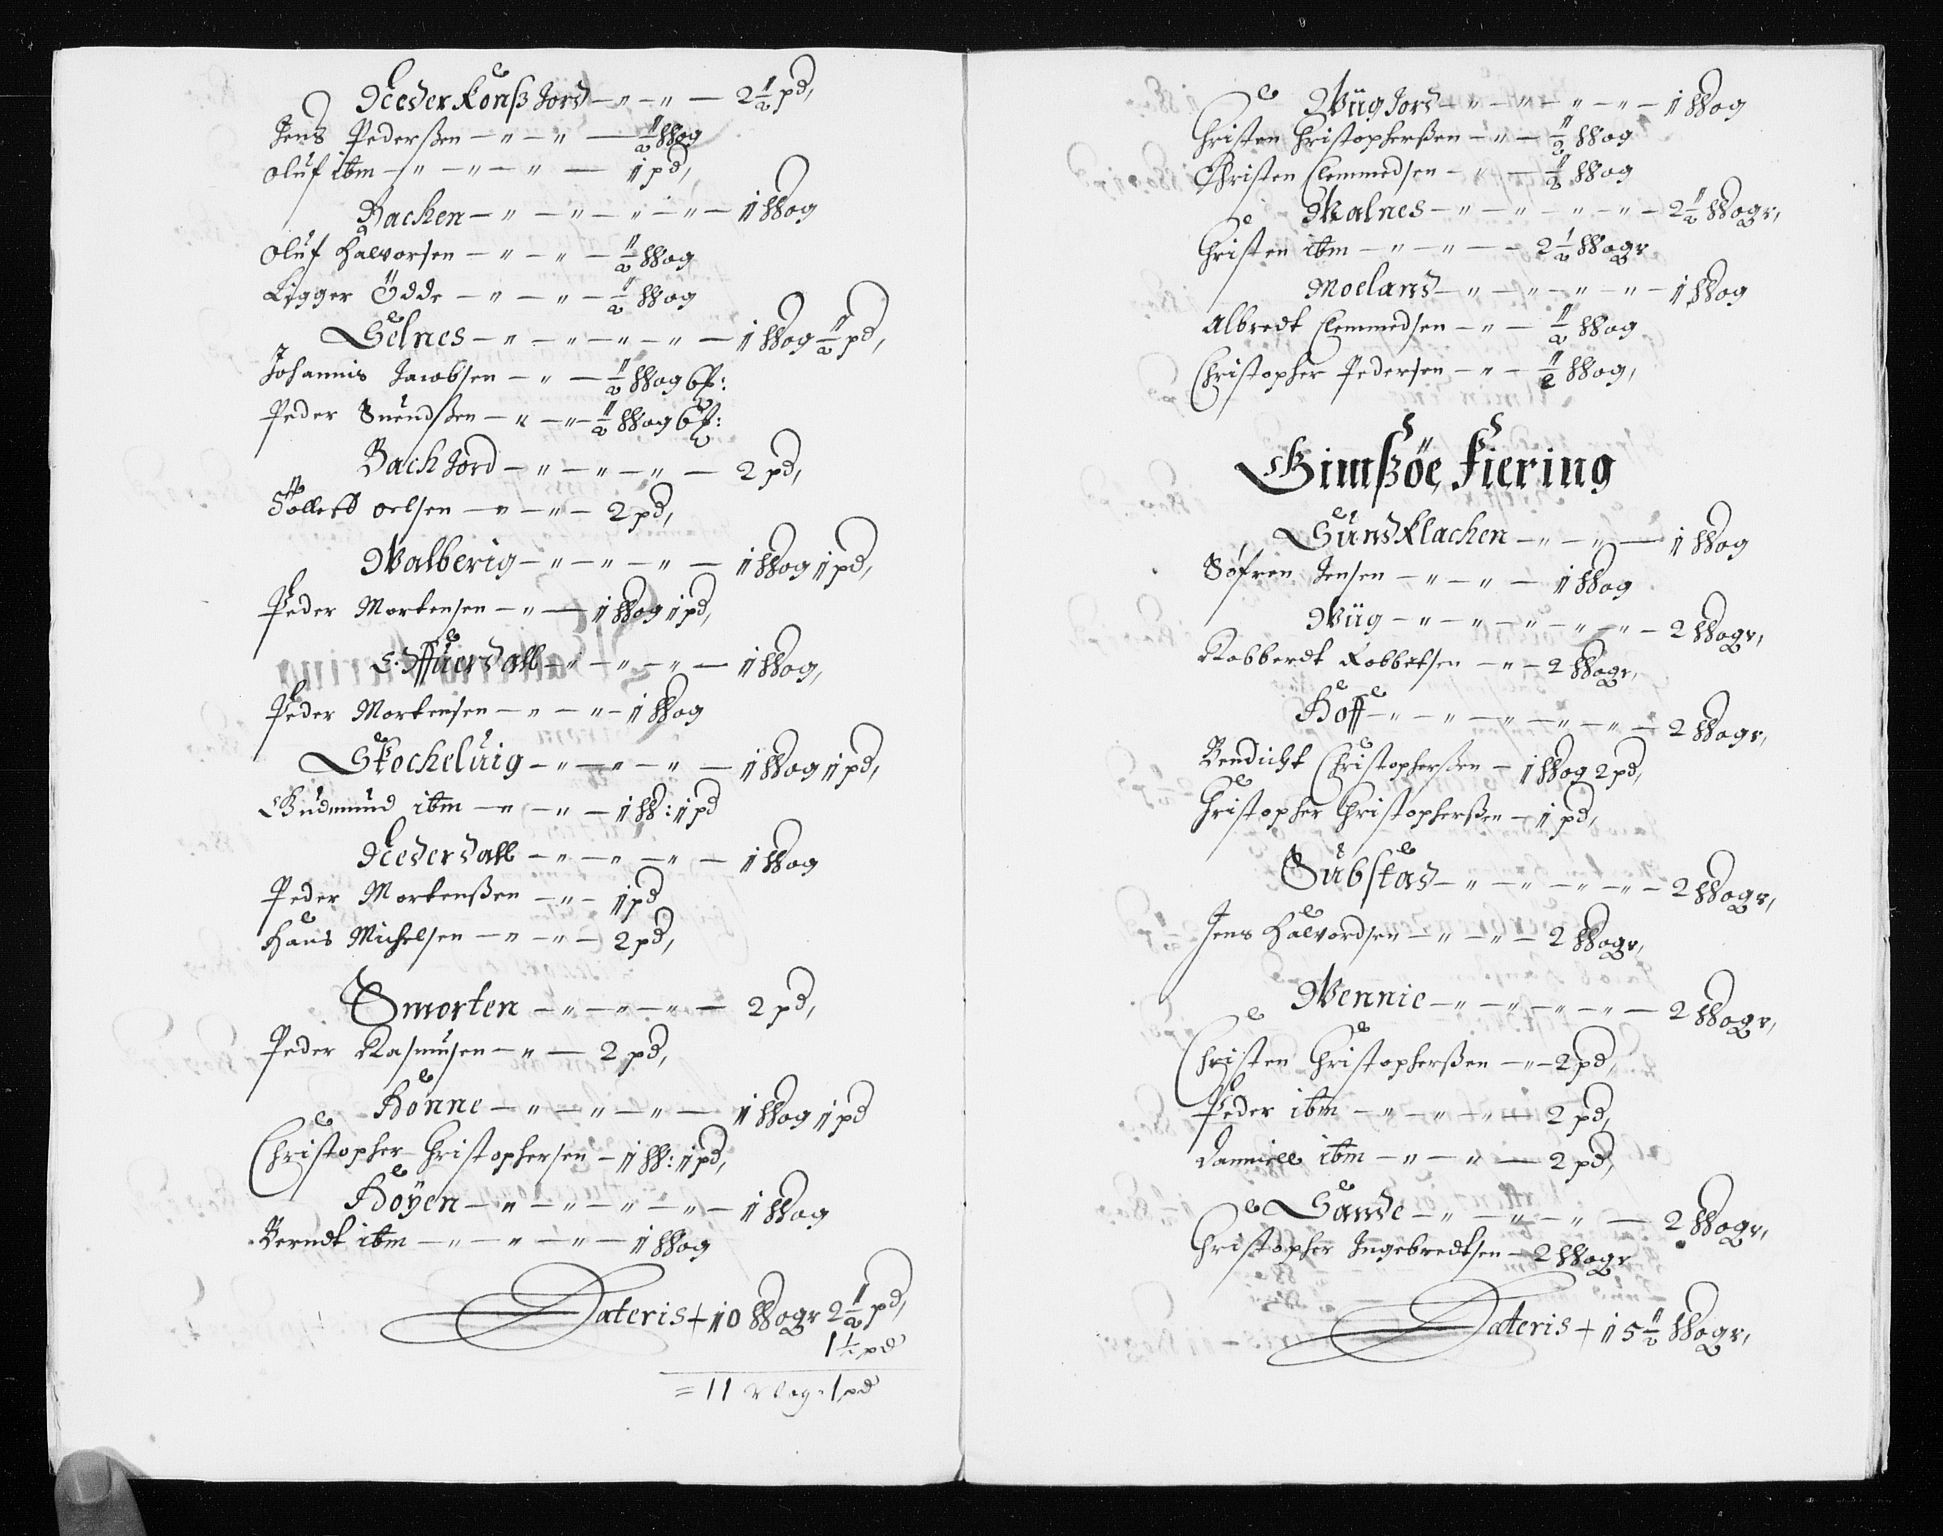 Neder Konß Jord — " — " — 2 1/2 pd,
Jens Pederßen — " — " — 1/2 Wog
Oluf ibm — " — " — " — 1 pd,
Bachen — " — " — " — " — 1 Wog
Oluf Halvorsen — " — " — 1/2 Wog
Ligger Ödde — " — " — 1/2 Wog
Selnes — " — " — " — " — 1 Wog 1/2 pd,
Johannis Jacobsen — " — 1/2 Wog 6 f:
Peder Suendßen — " — " — 1/2 Wog 6 f:
Bach Jord — " — " — " — 2 pd,
Tolleff Oelsen — " — " — 2 pd,
Walberig — " — " — " — 1 Wog 1 pd,
Peder Mortensen — " — 1 Wog 1 pd,
Öffuerdall — " — " — " — 1 Wog,
Peder Mortensen — " — " — 1 Wog
Skocheluig — " — " — " — 1 Wog 1 pd,
Gudmund ibm — " — " — 1 W: 1 pd
Nederdall — " — " — " — 1 Wog
Peder Mortenßen — " — 1 pd
Hans Michelsen — " — " — 2 pd,
Smorten — " — " — " — 2 pd,
Peder Rasmusen — " — 2 pd,
Bönne — " — " — " — 1 Wog 1 pd
Christopher Christophersen — 1 W: 1 pd,
Höÿen — " — " — " — " — 1 Wog
Berndt ibm — " — " — " — 1 Wog
Lateris + 10 Wogr 2 1/2 pd,
1 1/2 pd
= 11 Vog. 1 pd
Wiig Jord — " — " — " — " — 1 Wog
Christen Christopherßen — " — 1/2 Wog
Christen Clemmedsen — " — 1/2 Wog
Malnes — " — " — " — " — 2 1/2 Wogr,
Christen ibm — " — " — 2 1/2 Wogr
Moeland — " — " — " — " — 1 Wog
Albredt Clemmedsen — " — 1/2 Wog
Christopher Pedersen — " — 1/2 Wog,
Gimßöe Fiering
Sundklachen — " — " — 1 Wog
Söfren Jensen — " — " — 1 Wog
Wiig — " — " — " — " — " — 2 Wogr,
Robberdt Robbetsen — " — 2 Wogr,
Hoff — " — " — " — " — " — 2 Wogr,
Bendicht Christopherßen — 1 Wog 2 pd,
Christopher Christopherßen — 1 pd,
Substad — " — " — " — " — 2 Wogr,
Jens Halvordsen — " — " — 2 Wogr,
Wennie — " — " — " — " — 2 Wogr,
Christen Christopherßen — " — 2 pd,
Peder ibm — " — " — " — 2 pd,
Danniell ibm — " — " — 2 pd,
Sande — " — " — " — 2 Wogr,
Christopher Ingebredtsen — 2 Wogr
Lateris + 15 1/2 Wogr,